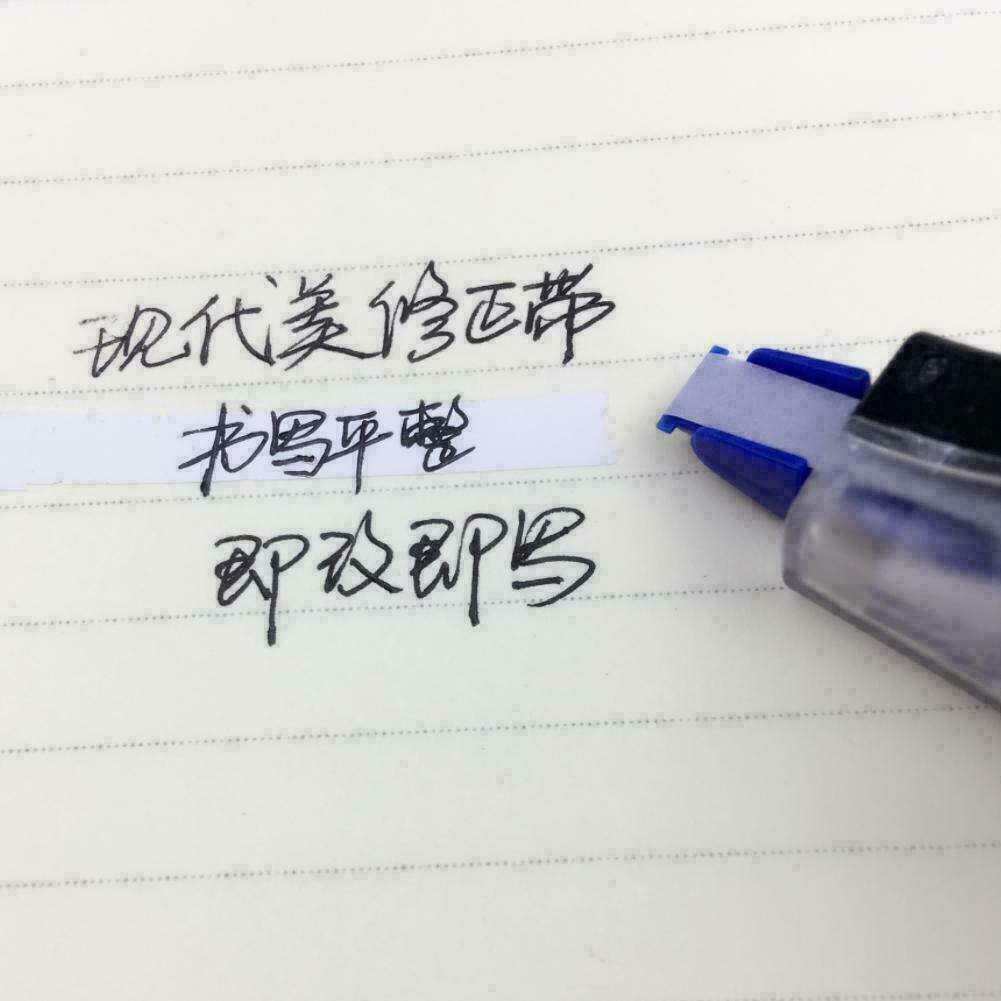 现代美修正带
书写平整
即改即写